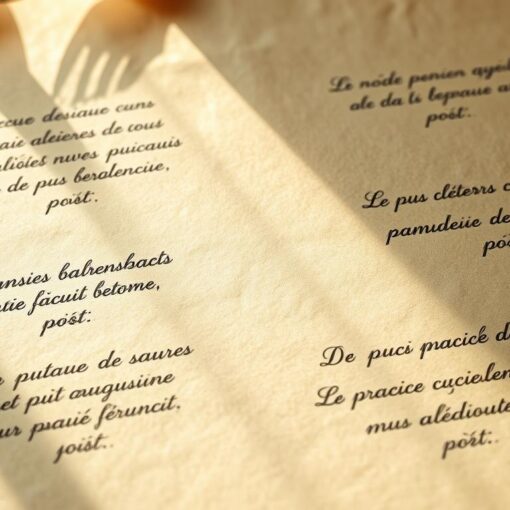 ccue desiaue cuns
aie aleieres de cous
alioies nuves puicauis
de pus beralencue,
poist:.
ansies balrensbacts
rtie fácuit betome,
pöst:
putaue de saures
et puit augusiine
ur psauié féruncit,
joist..
Le node penien
ale da ls lepraue a
post:.
Le pus cléterrs c
pamudeiie de
pös
De puci pracick d
Le pracice cuçielen
mus alédioute
pöst:.